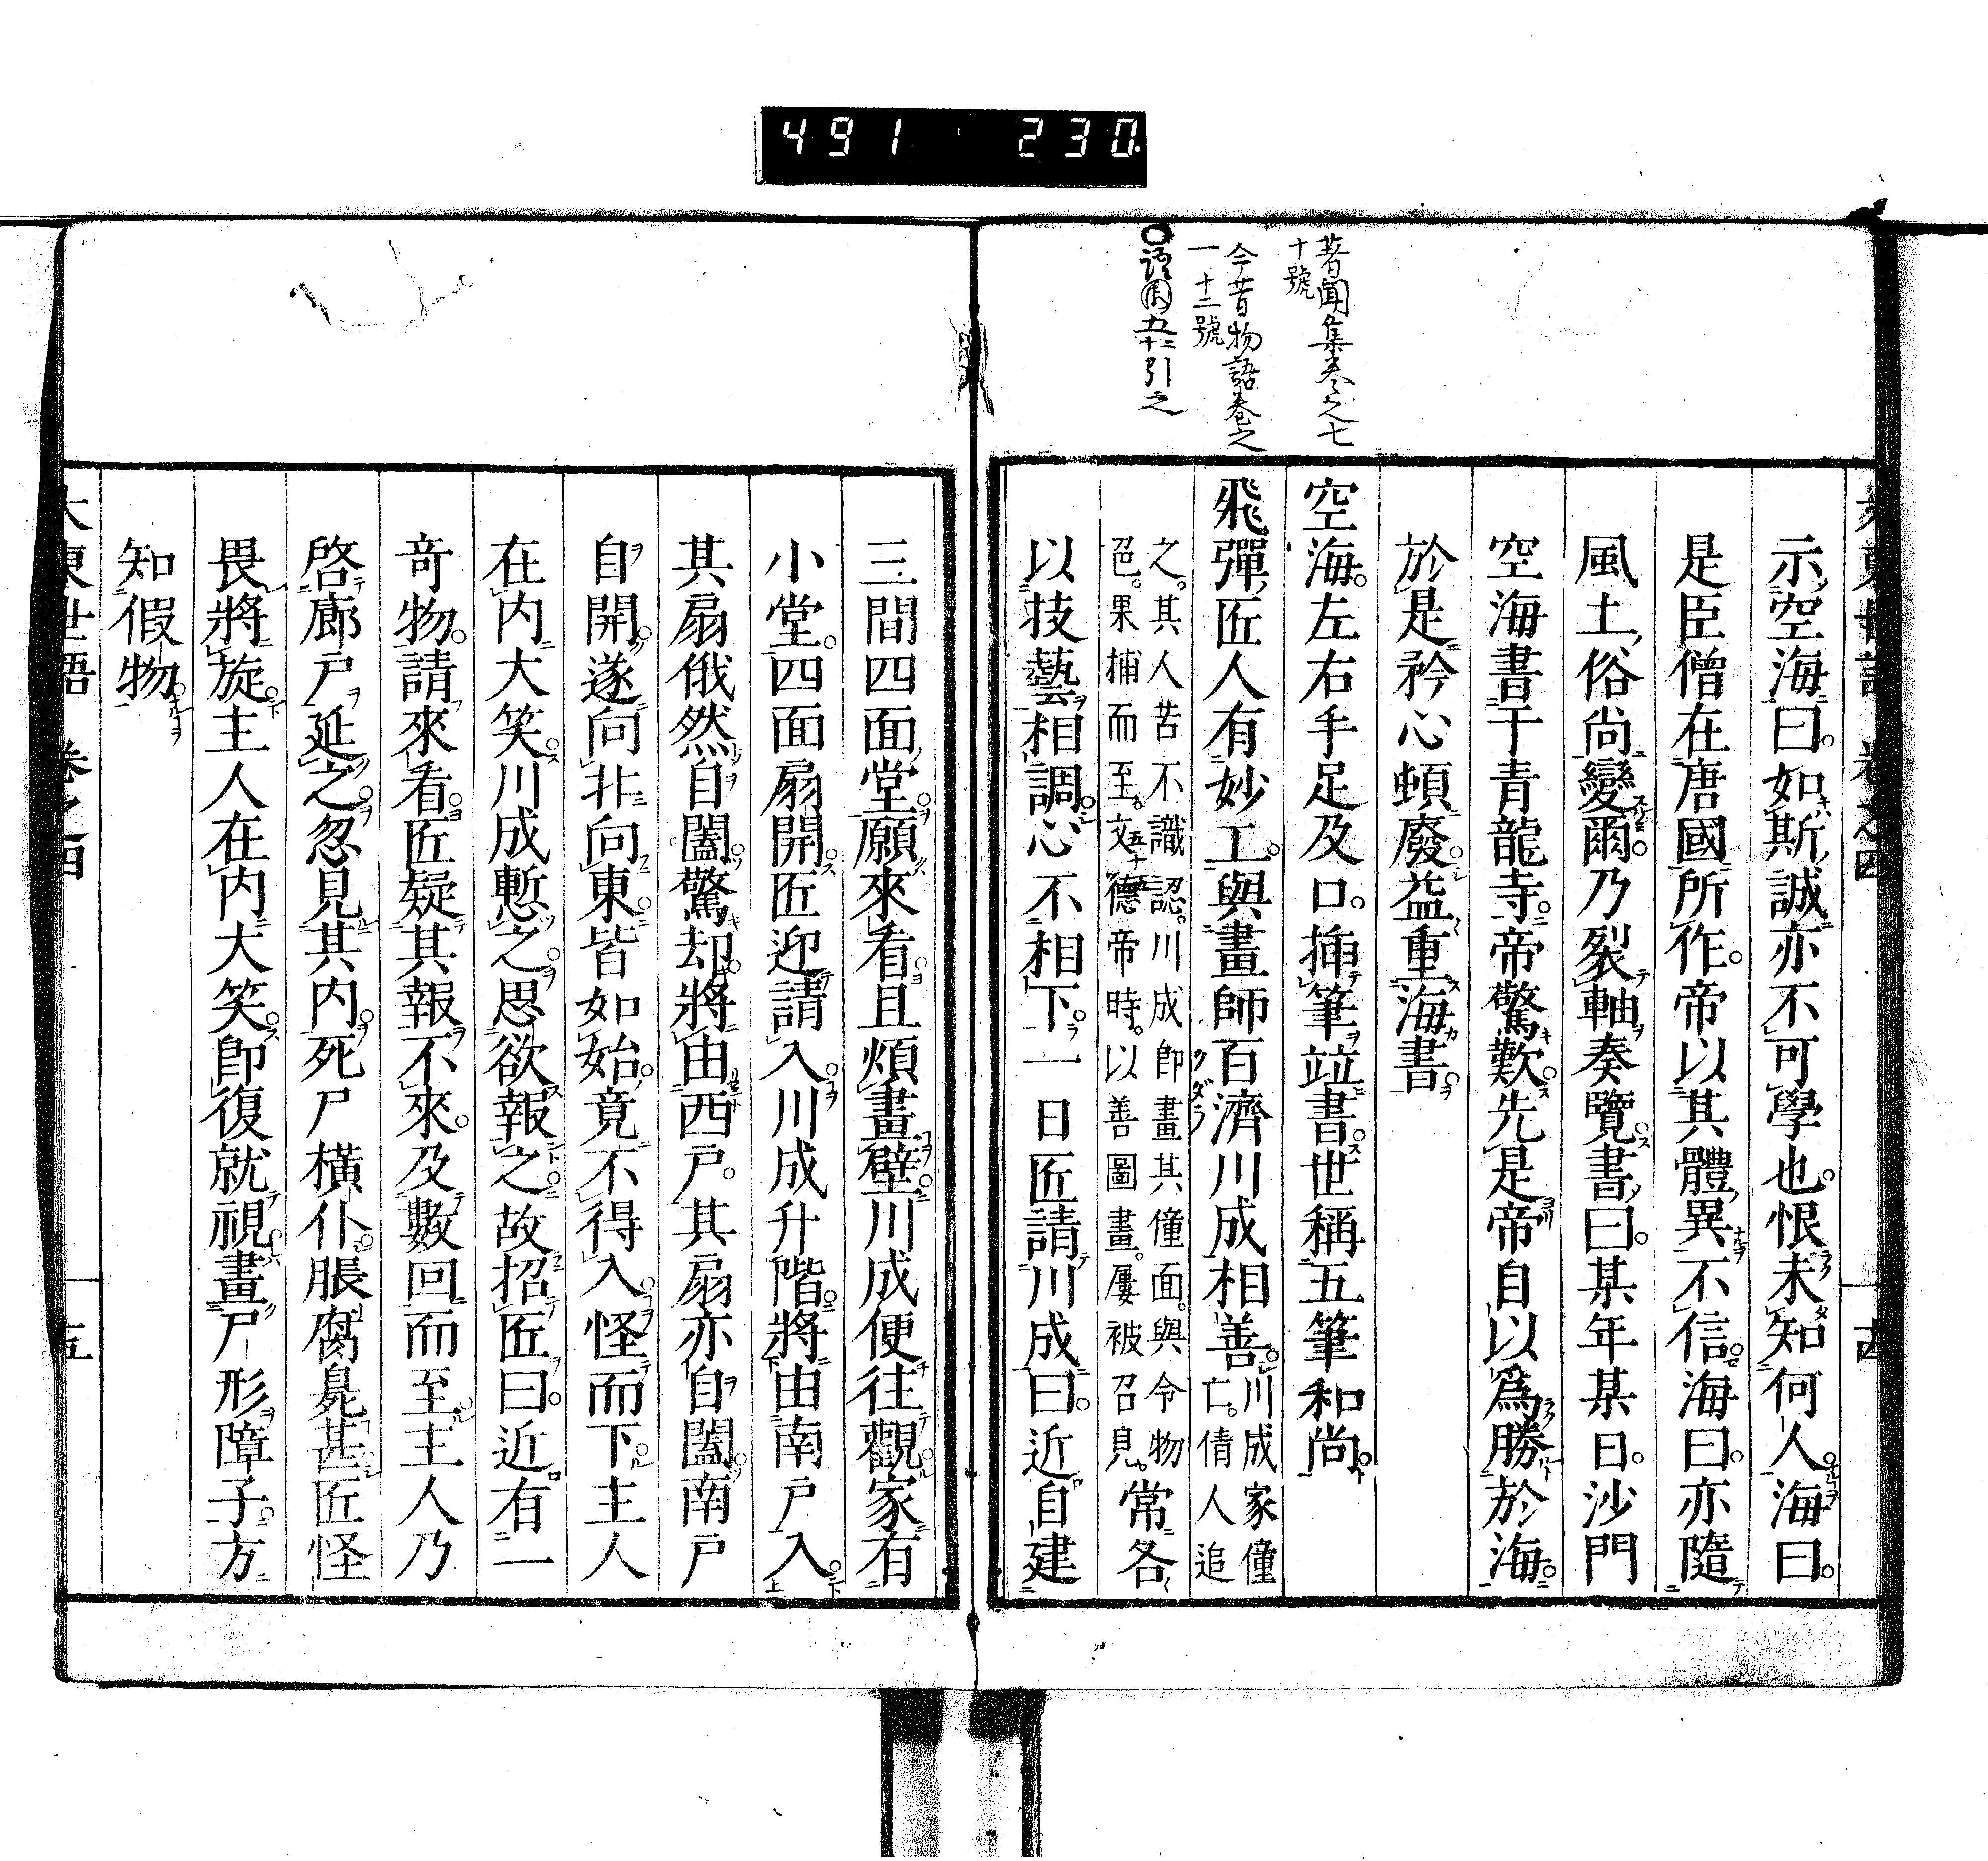 491 230
著聞集卷之七
十號
今昔物語卷之
一 十二號
引之
示空海曰。如斯誠亦不可學也。恨未知何人。海曰。
是臣僧在唐國所作。帝以其體異不信。海曰。亦隨
風土俗尚變爾。乃裂軸奏覽。書曰。某年某日。沙門
空海書于青龍寺。帝驚歎。先是帝自以爲勝於海。
於是矜心頓廢。益重海書。
空海。左右手足及口。揷筆竝書。世稱五筆和尚。
飛彈匠人有妙工。與畫師百濟川成相善。川成家僮
亡。倩人追
之。其人苦不識認。川成卽畫其僮面。與令物
色。果捕而至。文德帝時。以善圖畫。屢被召見。常各
以技藝相調。心不相下。一日匠請川成曰。近自建
三間四面堂。願來看。且煩畫壁。川成便往觀。家有
小堂。四面扇開。匠迎請入。川成升階。將由南戶入。
其扇俄然自闔。驚却將由西戶。其扇亦自闔。南戶
自開。遂向北向東。皆如始。竟不得入。怪而下。主人
在內大笑。川成慙之。思欲報之。故招匠曰。近有一
奇物。請來看。匠疑其報不來。及數回而至。主人乃
啓廊戶延之。忽見其內。死尸橫仆。脹腐臭甚。匠怪
畏將旋。主人在內大笑。卽復就視。畫尸形障子。方
知假物。
大東世語 卷之四 十五